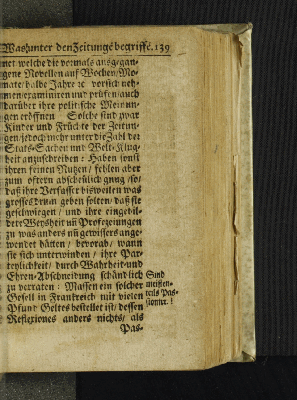 Was unter den Zeitungē begriffē. 139
net welche die vormals ausgegan-
gene Novellen auf Wochen/ Mo-
mate/ halbe Jahre ꝛc vorsich neh-
men/ examiniren und prüfen/ auch
darüber ihre politische Meinun-
gen eröffnen   Solche sind zwar
Kinder und Früchte der Zeitun-
gen/ jedoch mehr unter die Zahl der
Stats-Sachen und Welt-Klug-
heit anzuschreiben: Haben sonst
ihren feinen Nutzen/ fehlen aber
zum öftern abscheulich gnug/ so/
daß ihre Verfasser bisweilen was
grosses drum geben solten/ daß sie
geschwiegen/ und ihre eingebil-
dete Weysheit uñ Profezeiungen
zu was anders uñ gewissers ange-
wendet hätten/ bevorab/ wann
sie sich unterwinden/ ihre Par-
teylichkeit/ durch Wahrheit-und
Ehren-Abschneidung schändlich
zu verraten: Massen ein solcher
Gesell in Frankreich mit vielen
Pfund Geltes bestellet ist/ dessen
Reflexiones anders nichts/ als
Pas-
Sind
meisten-
teils Pas-